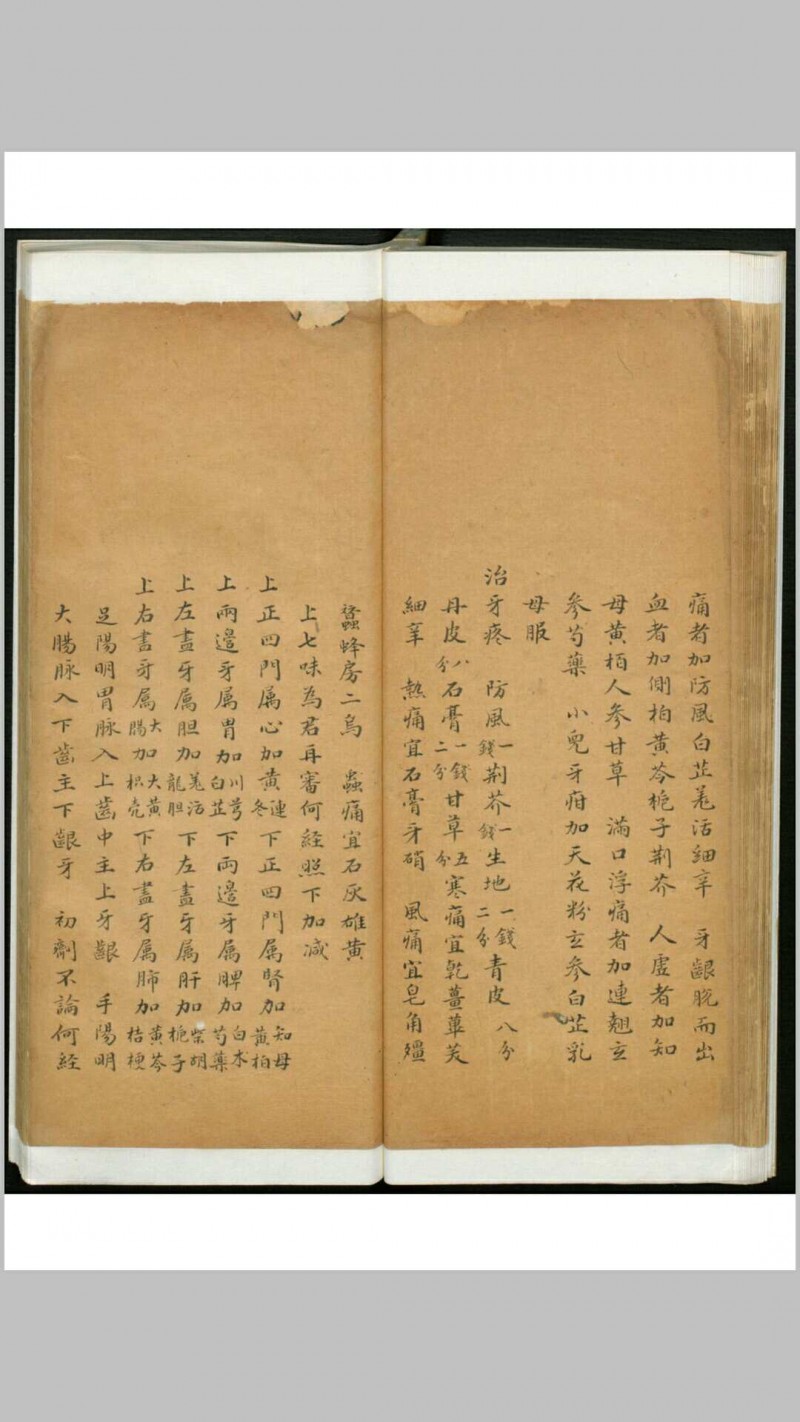 痛者加防風白芷羗活細辛　牙齦脫而出
血者加側柏黃芩梔子荆芥　人虛者加知
母黃栢人參甘草　滿口浮痛者加連翹玄
參芍藥　小兒牙疳加天花粉玄參白芷乳
母服
治牙疼　防風一錢荆芥一錢生地一錢二分青皮八分
丹皮八分石膏一錢二分甘草五分寒痛宜乾薑蓽芨
細辛　熱痛宜石膏牙硝　風痛宜皂角殭
蠶蜂房二烏　蟲痛宜石灰雄黃
上七味為君再審何経照下加減
上正四門属心加黃連麥冬下正四門属腎加知母黃栢
上兩邉牙属胃加川芎白芷下兩邉牙属脾加白术芍藥
上左盡牙属胆加羗活龍胆下左盡牙属肝加柴胡梔子
上右盡牙属大腸加大黃枳壳下右盡牙属肺加黃芩桔梗
足陽明胃脉入上齒中主上牙齦　手陽明
大腸脉入下齒主下齦牙　初劑不論何経